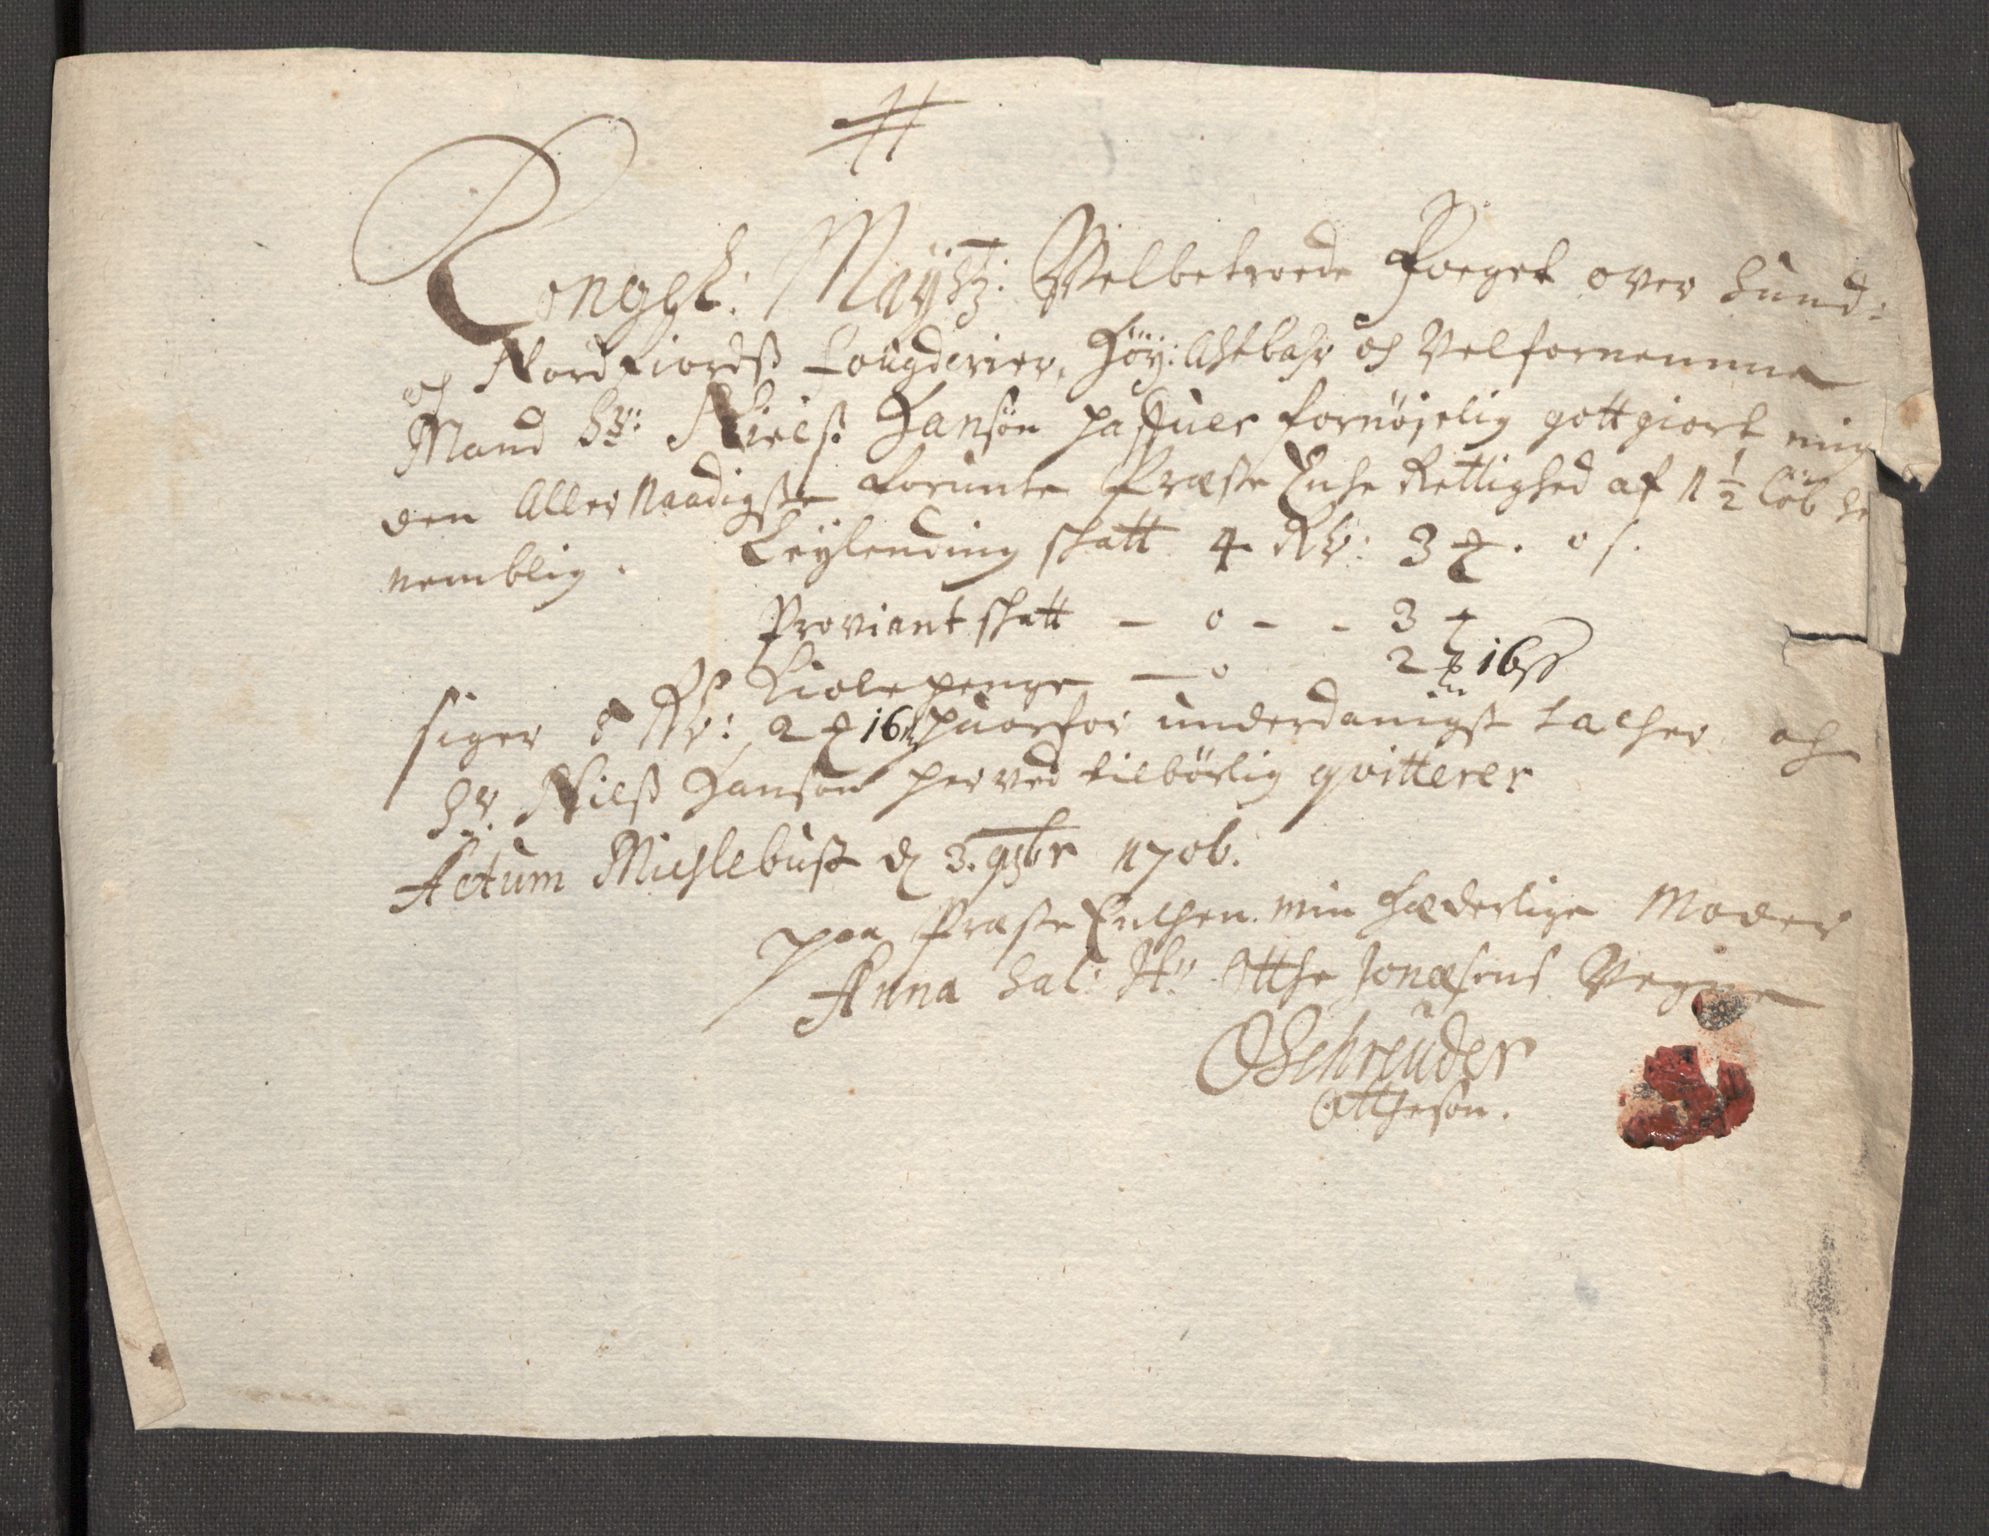 H
Kongel: Mayhtz: Velbetroede Foeget over Sund:
och Nordfiords fougderier, Höy: Achtbahr och Velfornemme
Mand Sr: Niels Hansön haffuer fornöjelig gottgiort mig
den Aller Naadigste forunte Præste Enche Rettighed af 1 1/2 löb
nemblig. Leÿlending schatt 4 Rd: 3 . 0 s.
Proviant schatt – 0 – – 3
Kiolepenge – 0 2 16 s
siger 5 Rd: 2 16 s huorfor underdanigst tacher och
Sr. Niels Hanson herved tilbörlig qvitterer
Actum Michlebust d 3. 9br 1706.
paa Præste Enchen min Hæderlige Moder
Anna Sal: Hr Otthe Jonæsens Vegne
OSchreuder
Ottheson.